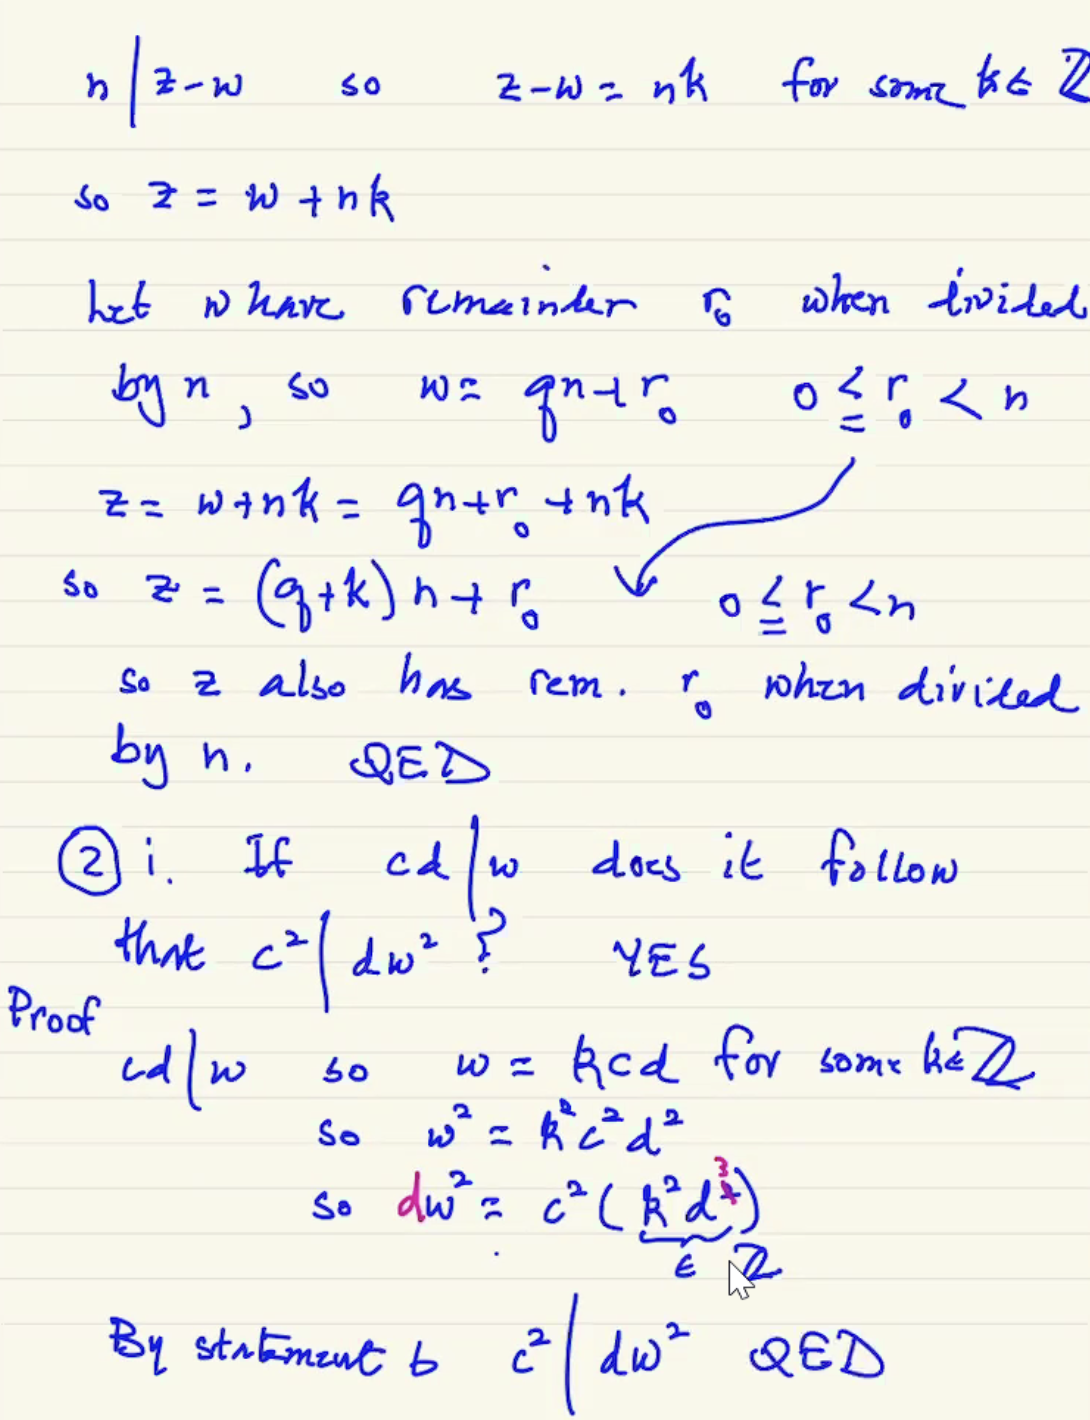 n | z-w so z-w = nk for some k ∈ ℤ
so z = w + nk
Let w have remainder r₀ when divided
by n, so w = qn + r₀ 0 ≤ r₀ < n
z = w + nk = qn + r₀ + nk
so z = (q+k) n + r₀ 0 ≤ r₀ < n
so z also has rem. r₀ when divided
by n. QED
② i. If cd | w does it follow
that c² | dw² ? YES
Proof
cd | w so w = kcd for some k ∈ ℤ
so w² = k²c²d²
so dw² = c² (k²d³)
∈ ℤ
By statement b c² | dw² QED